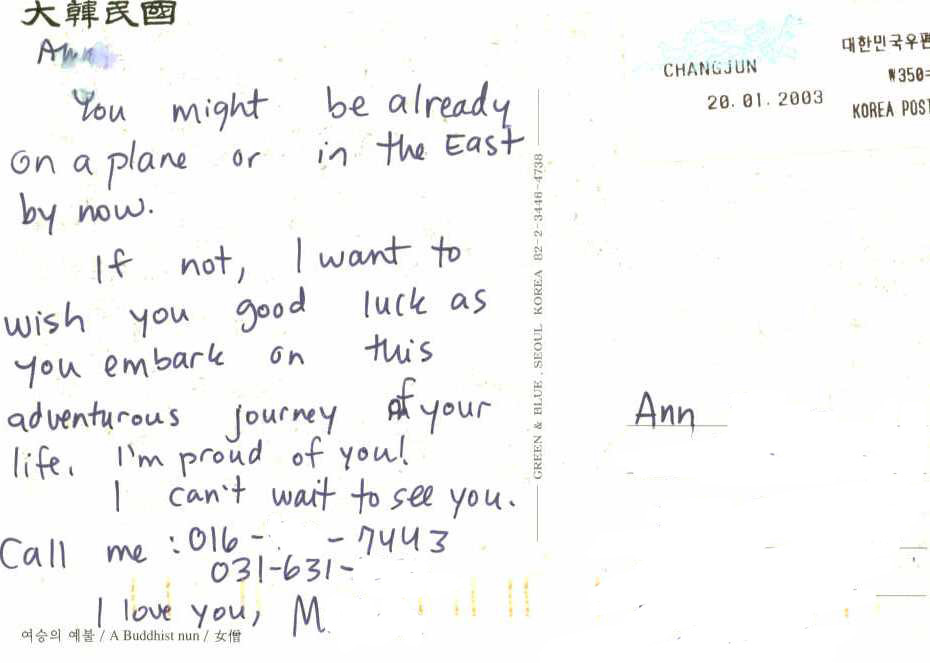 大韓民國
Ann
You might be already
on a plane or in the East
by now.
If not, I want to
wish you good luck as
you embark on this
adventurous journey of your
life. I'm proud of you!
I can't wait to see you.
Call me : 016- -7443
031-631-
I love you, M
여승의 예불 / A Buddhist nun / 女僧
GREEN & BLUE . SEOUL KOREA 82-2-3446-4738
CHANGJUN
20.01.2003
대한민국우편
₩350=
KOREA POST
Ann